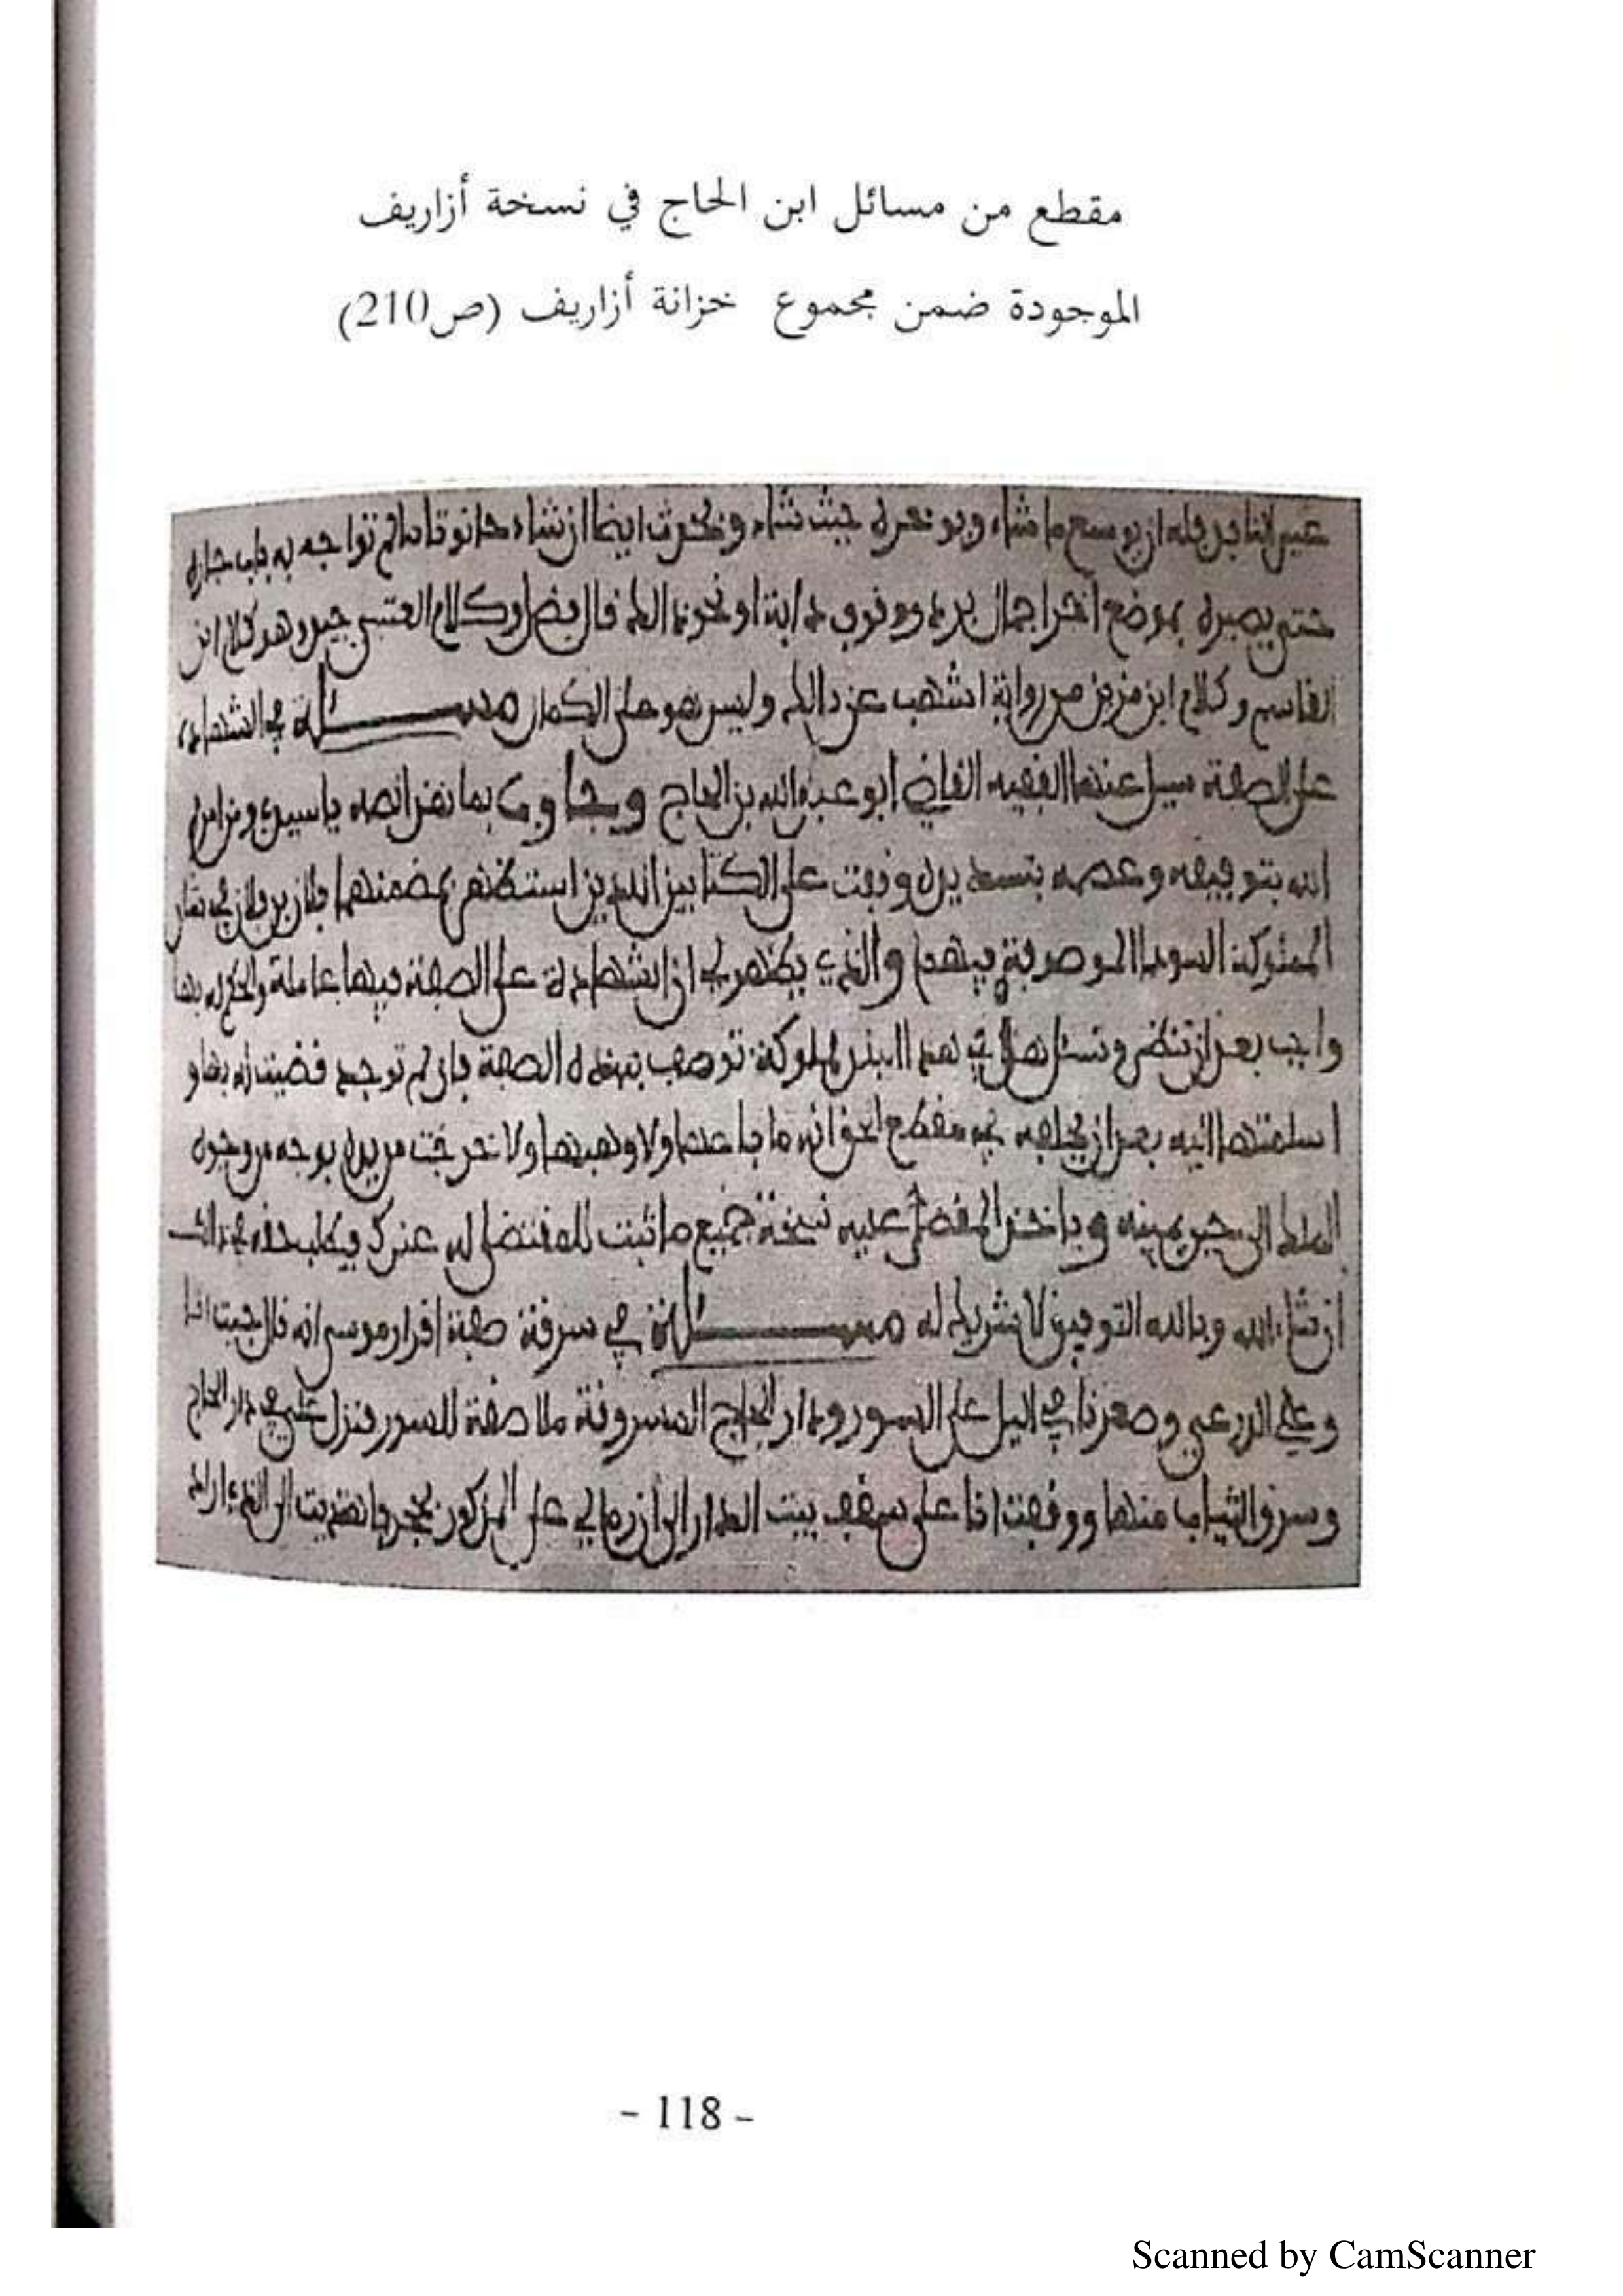 مقطع من مسائل ابن الحاج في نسخة أزاريف
الموجودة ضمن مجموع خزانة أزاريف (ص210)
ما شاء حيث شاء ايضا ان شاء حانوتا ما لم تواجه به باب جاره
بموضع اخر دابة او نحو ذلك قال فضل وكلام العتبي وهو كلام ابن
القاسم وكلام ابن مزين من رواية اشهب عن ذلك وليس هو على الكمال مسئلة في الشهادة
على الصفة سيل عنها الفقيه القاضي ابو عبد الله بن الحاج وجاوب بما نص انصه يا سيدي ومن امره
الله بتوفيقه وعصمه بتسديده وقفت على الكتابين الذين استظهر بمضمنهما فلان بن فلان في شان
المملوكة السودا الموصوفة فيهما والذي يظهر لي ان الشهادة على الصفة فيها عاملة والحكم له بها
واجب بعد ان تنظر وتسئل هل في هذا البلد مملوكة توصف بهذه الصفة فان لم توجد قضيت له بها و
اسلمتها اليه بعد ان يحلف في مقطع الحق انه ما باعها ولا وهبها ولا خرجت من يده بوجه من وجوه
الملك الى حين يمينه وياخذ المقضى عليه نسخة جميع ما ثبت للمقتضى له عندك ويطلب حقه في ذلك
ان شاء الله وبالله التوفيق لا شريك له مسئلة في سرقة صفة اقرار موسى انه قال جيت انا
وعلي الزرعي وصعدنا في اليل على السور ودار الحاج المسروقة ملاصقة للسور فنزل علي في دار الحاج
وسرق الثياب منها ووقفت انا على سقف بيت الدار الى ان رمى لي علي المذكور
- 118 -
Scanned by CamScanner